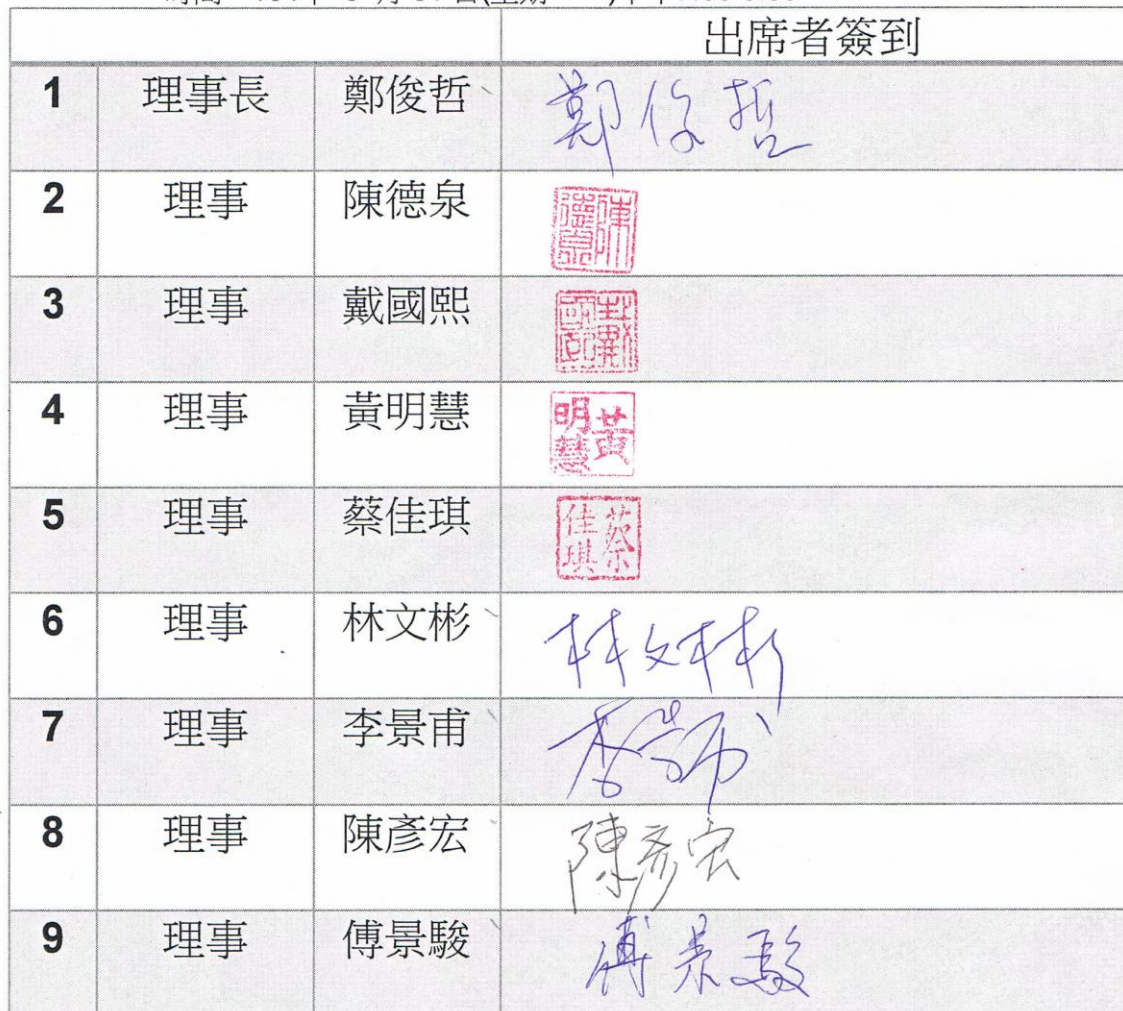 出席者簽到
1 理事長 鄭俊哲 鄭俊哲
2 理事 陳德泉 陳德泉
3 理事 戴國熙 戴國熙
4 理事 黃明慧 黃明慧
5 理事 蔡佳琪 蔡佳琪
6 理事 林文彬 林文彬
7 理事 李景甫 李景甫
8 理事 陳彥宏 陳彥宏
9 理事 傅景駿 傅景駿